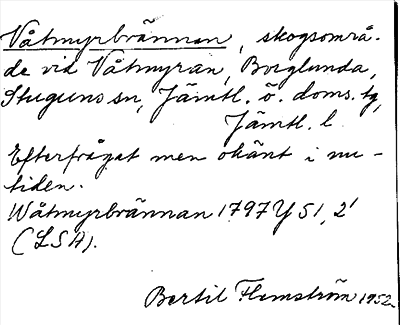 Våtmyrbrännan, skogsområ-
de vid Våtmyran, Borglunda,
Stuguns sn, Jämtl. ö. doms. tg,
Jämtl. l.
Efterfrågat men okänt i nu-
tiden.
Wåtmyrbrännan 1797 Y 51, 2'
(LSA).
Bertil Flemström 1952.